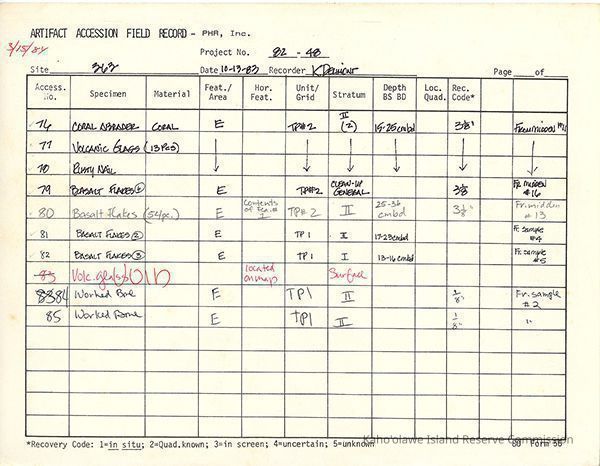 ARTIFACT ACCESSION FIELD RECORD - PHR, Inc.
3/15/84
Project No. 82 - 48
Site 363 Date 10-13-83 Recorder Page of
Access. No. Specimen Material Feat./ Area Hor. Feat. Unit/ Grid Stratum Depth BS BD Loc. Quad. Rec. Code*
76 CORAL ABRADER CORAL E TP#2 II (2) 15-25cmbd 3⅛" Fr.midden
77 VOLCANIC GLASS (13 pcs)
78 RUSTY NAIL
79 BASALT FLAKES E TP#2 CLEAN-UP GENERAL 3⅛ Fr. midden #16
80 Basalt Flakes (54pc.) Contents of Fea.# 1 TP#2 II 25-36 cmbd 3⅛" Fr.midden #13
81 BASALT FLAKES (2) E TP1 I 17-23cmbd Fr. sample #4
82 BASALT FLAKES (3) E TP1 I 13-16 cmbd Fr. sample #5
83 Volc. glass VOID located on map Surface
8384 Worked Bone E TP1 II ⅛" Fr. sample #2
85 Worked Bone E TP1 II ⅛" "
*Recovery Code: 1=in situ; 2=Quad.known; 3=in screen; 4=uncertain; 5=unknown
Kaho'olawe Island Reserve Commission
80 Form 56